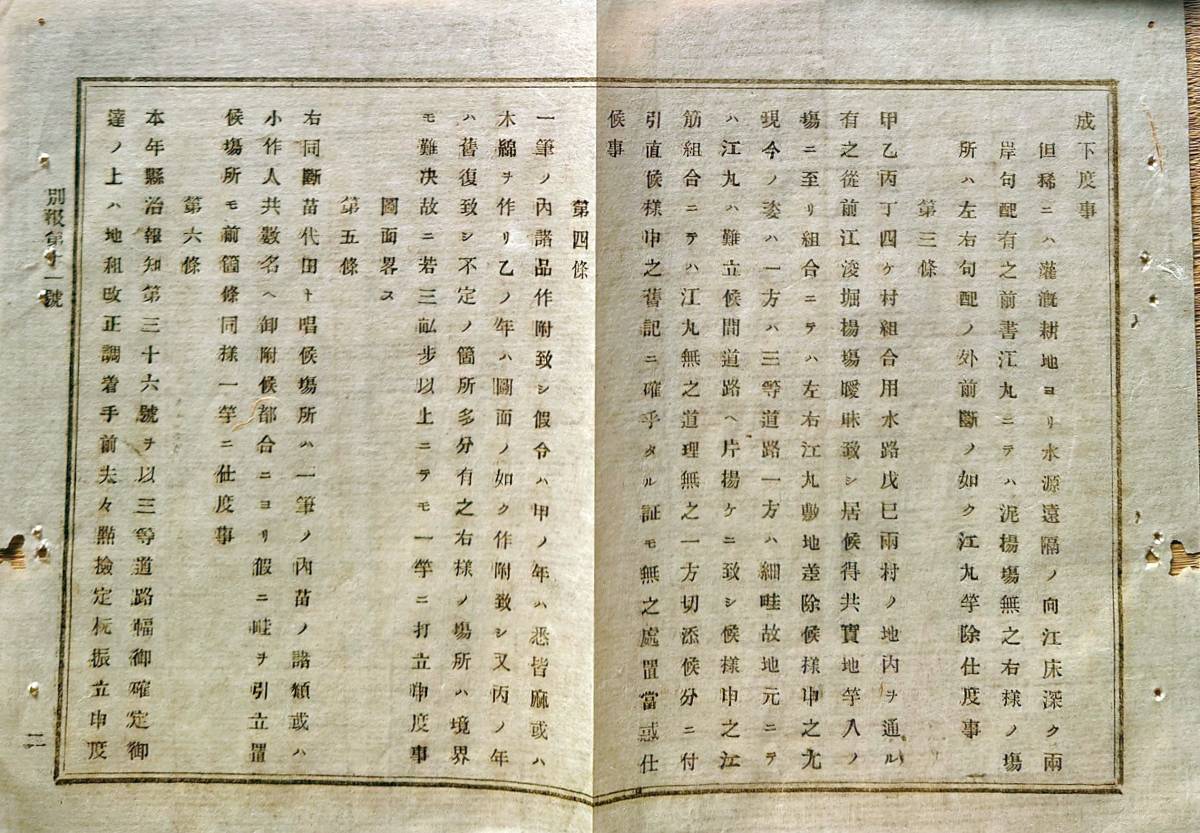 成下度事
但稀ニハ灌漑耕地ヨリ水源遠隔ノ向江床深ク兩
岸句配有之前書江丸ニテハ泥揚塲無之右樣ノ塲
所ハ左右句配ノ外前斷ノ如ク江丸竿除仕度事
第三條
甲乙丙丁四ケ村組合用水路戊巳兩村ノ地内ヲ通ル
有之從前江浚堀揚塲曖昧致シ居候得共實地竿入ノ
塲ニ至リ組合ニテハ左右江丸敷地差除候樣申之尤
現今ノ姿ハ一方ハ三等道路一方ハ細畦故地元ニテ
ハ江丸ハ難立候間道路ヘ片揚ケニ致シ候樣申之江
筋組合ニテハ江丸無之道理無之一方切添候分ニ付
引直候樣申之舊記ニ確乎タル証モ無之處置當惑仕
候事
第四條
一筆ノ内諸品作附致シ假令ハ甲ノ年ハ悉皆麻或ハ
木綿ヲ作リ乙ノ年ハ圖面ノ如ク作附致シ又丙ノ年
ハ舊復致シ不定ノ箇所多分有之右樣ノ塲所ハ境界
モ難决故ニ若三畝步以上ニテモ一竿ニ打立申度事
圖面畧ス
第五條
右同斷苗代田ト唱候塲所ハ一筆ノ内苗ノ諸類或ハ
小作人共數名ヘ卸附候都合ニヨリ假ニ畦ヲ引立置
候塲所モ前箇條同樣一竿ニ仕度事
第六條
本年縣治報知第三十六號ヲ以三等道路幅御確定御
達ノ上ハ地租改正調着手前夫々點撿定杭振立申度
別報第十一號
二